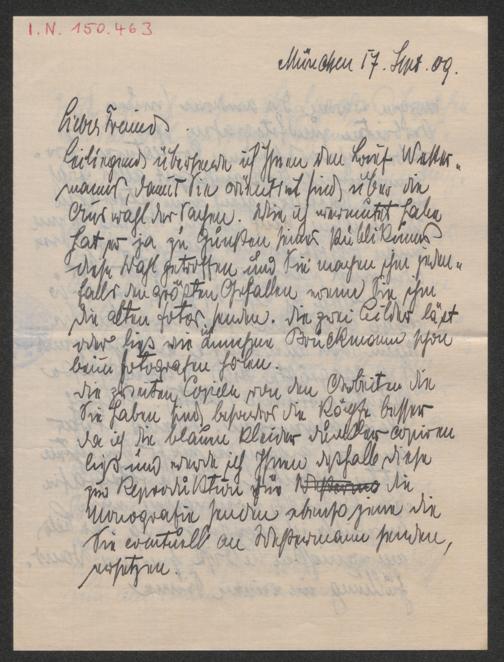 I.N. 150.463
München 17. Sept. 09.
Lieber Freund
Beiliegend übersende ich Ihnen den Brief Wester-
manns, damit Sie orientirt sind über die
Auswahl der Sachen. Wie ich vermutet habe
hat er ja zu Gunsten seines Publikums
diese Wahl getroffen und Sie machen ihm jeden-
falls den größten Gefallen wenn Sie ihm
die alten Fotos senden. Die zwei Bilder läßt
oder ließ wie Bruckmann schon
beim Fotografen holen.
Die zweiten Copien von den Arbeiten die
Sie haben sind besonders die Köpfe besser
da ich die blauen Kleider dunkler copiren
ließ und werde ich Ihnen deshalb diese
zur Reproduktion für die
Monografie senden ebenso jene die
Sie eventuell an Westermann senden,
ersetzen.